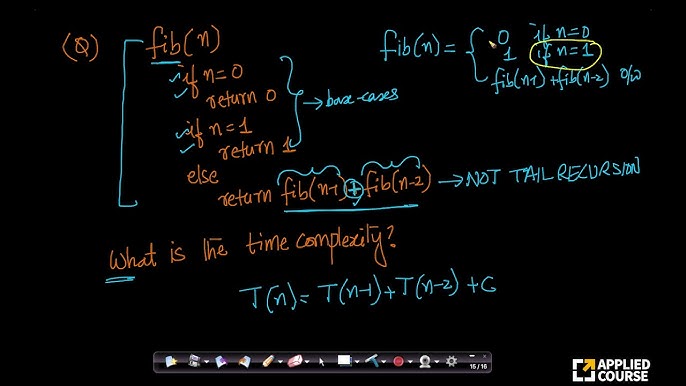 (Q) fib(n)
if n=0
return 0
if n=1
return 1
→ base-cases
else
return fib(n-1) + fib(n-2) → NOT TAIL RECURSION
fib(n) = { 0 if n=0
1 if n=1
fib(n-1)+fib(n-2) o/w
What is the time complexity?
T(n) = T(n-1) + T(n-2) + C
15 / 16
APPLIED
COURSE